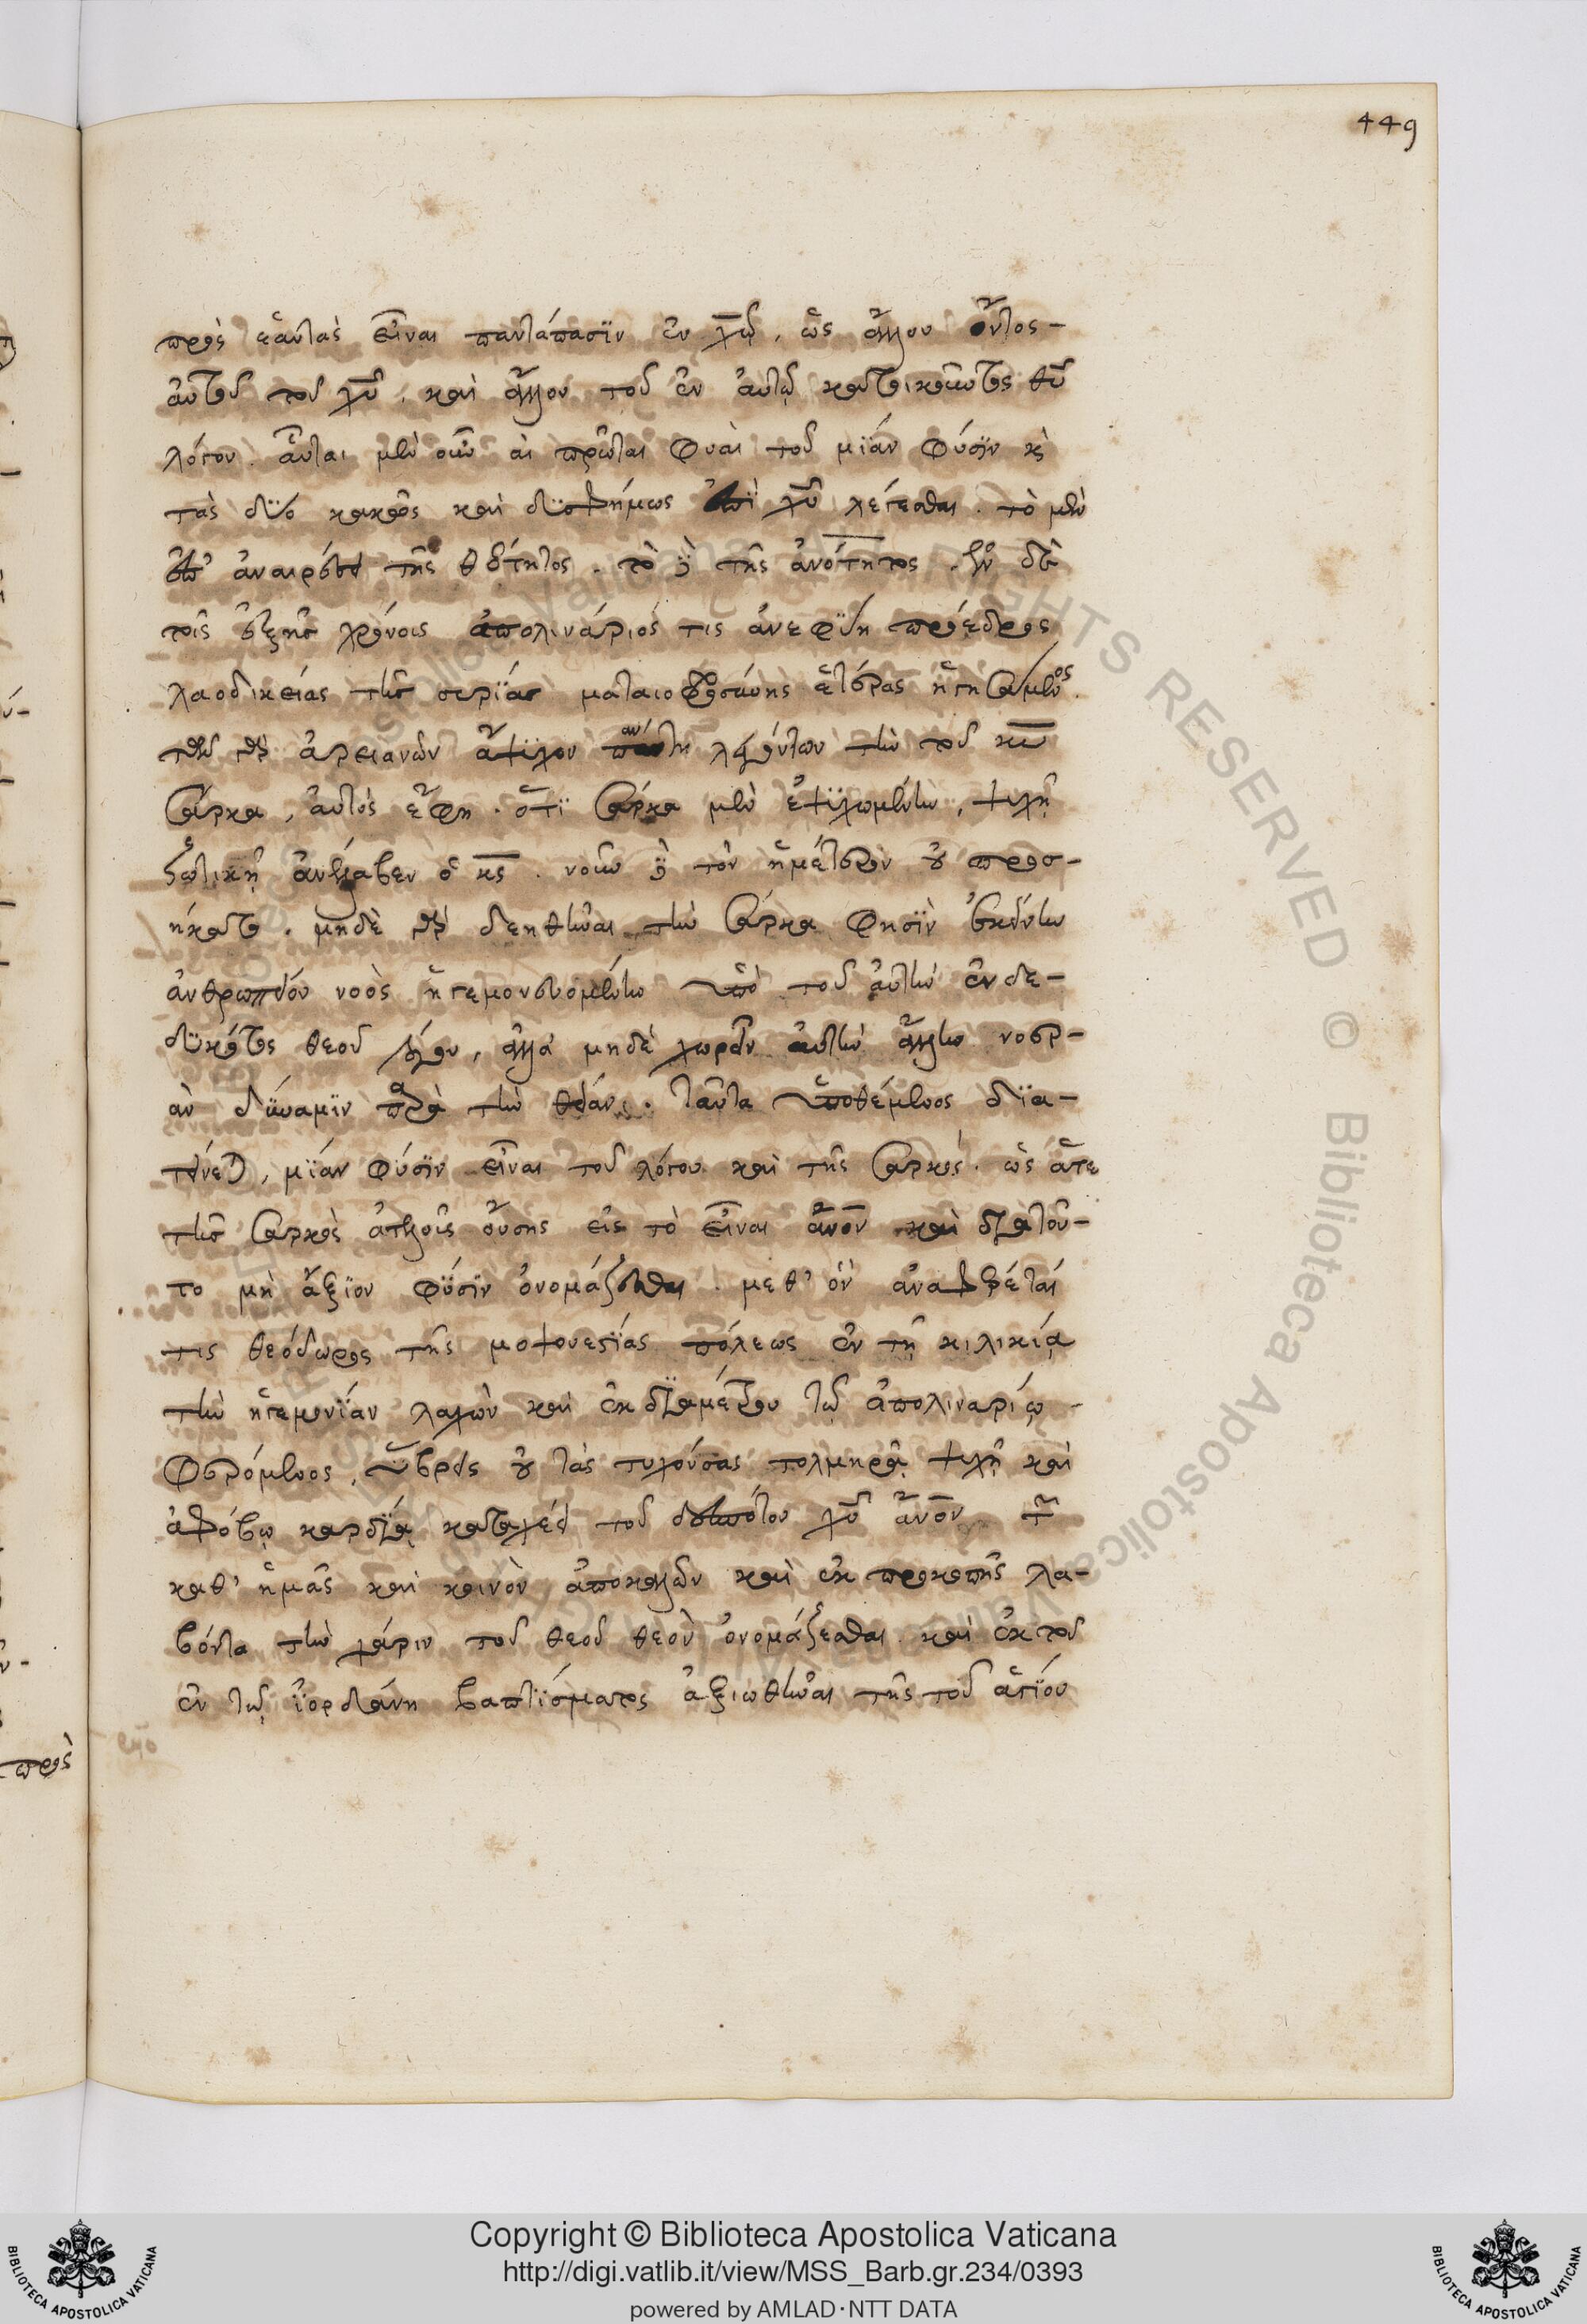 449
πρὸς ἑαυτὰς εἶναι παντάπασϊν ἐν χῶ, ὡς ἄλλου ὄντος
αὐτοῦ τοῦ χῦ, καὶ ἄλλου τοῦ ἐν αὐτῷ κατοικοῦντος θῦ
λόγου. αὗται μὲν οὖν αἱ πρῶται φυαὶ τοῦ μϊὰν φύσϊν κὶ
τὰς δύο κακῶς καὶ δϋσφήμως ἐπὶ χῦ λέγεσθαι. τὸ μὲν
ἐπ' ἀναιρέσει τῆς θεότητος. τὸ δὲ τῆς ἀνότητος. ἐν δὲ
τοῖς ἑξῆς χρόνοις ἀπολινάριός τις ἀνεφύη πρόεδρος
λαοδικείας τῆς συρίας ματαιοφροσύνης ἑτέρας ἡγησάμενος.
τῶν γὰρ ἀρειανῶν ἄψϋχον πάντη ληρούντων τὴν τοῦ κῦ
σάρκα, αὐτὸς ἔφη. ὅτϊ σάρκα μὲν ἐψϋχωμένην, ψυχῇ
ζωτικῇ ἀνέλαβεν ὁ κς. νοῦν δὲ τὸν ἡμέτερον οὐ προσ-
ήκατο. μηδὲ γὰρ δεηθῆναι τὴν σάρκα φησϊν ἐκείνην
ἀνθρωπείου νοὸς ἡγεμονευομένην ὑπὸ τοῦ αὐτὴν ἐνδε-
δϋκότος θεοῦ λόγου, ἀλλὰ μηδὲ χωρεῖν αὐτὴν ἄλλην νοερ-
ὰν δύναμϊν παρὰ τὴν θείαν. ταῦτα ὑποθέμενος δϊα-
τείνεται, μϊάν φύσϊν εἶναι τοῦ λόγου καὶ τῆς σαρκός. ὡς ἅτε
τῆς σαρκὸς ἀτελοῦς οὔσης εἰς τὸ εἶναι ἄνον καὶ διατοῦ-
το μὴ ἄξϊον φύσϊν ὀνομάζεσθαι. μεθ' ὃν ἀναφύεταί
τις θεόδωρος τῆς μοψουεστίας πόλεως ἐν τῇ κιλικίᾳ
τὴν ἡγεμονίαν λαχὼν καὶ ἐκ διαμέτρου τῷ ἀπολιναρίῳ
φερόμενος, ὕβρεις οὐ τὰς τυχούσας τολμηρᾷ ψυχῇ καὶ
ἀφόβῳ καρδίᾳ καταχέει τοῦ δεσπότου χῦ ἄνον τῶν
καθ' ἡμᾶς καὶ κοινὸν ἀποκαλῶν καὶ ἐκ προκοπῆς λα-
βόντα τὴν χάριν τοῦ θεοῦ θεὸν ὀνομάζεσθαι. καὶ ἐκ τοῦ
ἐν τῷ ἰορδάνῃ βαπτίσματος ἀξιωθῆναι τῆς τοῦ ἁγίου
πρὸς
Copyright © Biblioteca Apostolica Vaticana
http://digi.vatlib.it/view/MSS_Barb.gr.234/0393
powered by AMLAD·NTT DATA